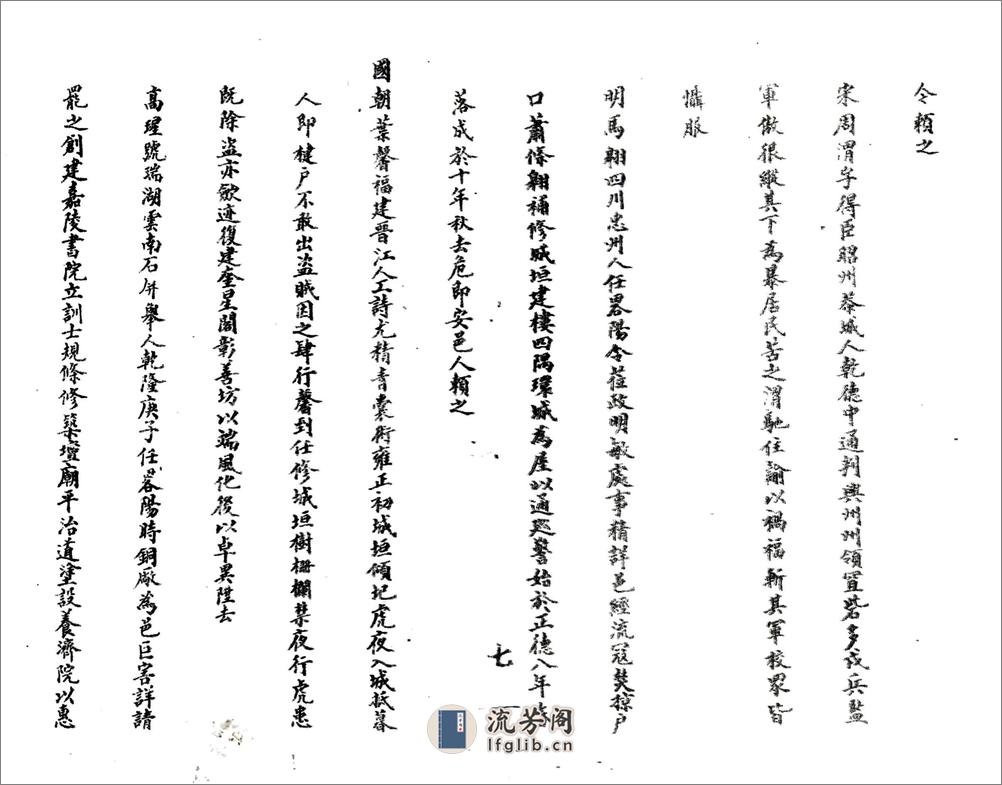 令賴之
宋周渭字得臣昭州恭城人乾德中通判興州州領置砦多戍兵監
軍傲很縱其下為暴居民苦之渭馳往諭以禍福斬其軍校眾皆
懾服
明馬翱四川忠州人任畧陽令蒞政明敏處事精詳邑經流冦焚掠戶
口蕭條翱補修城垣建樓四隅環城為屋以通巡警始於正德八年
落成於十年秋去危即安邑人賴之
國朝葉馨福建晉江人工詩尤精青囊術雍正初城垣傾圮虎夜入城抵暮
人即楗戶不敢出盜賊因之肆行馨到任修城垣樹柵欄禁夜行虎患
既除盜亦歛迹復建奎星閣彰善坊以端風化後以卓異陞去
高瑆號瑞湖雲南石屏舉人乾隆庚子任畧陽時銅廠為邑巨害詳請
罷之創建嘉陵書院立訓士規條修築壇廟平治道塗設養濟院以惠
七
流芳阁
lfglib.cn